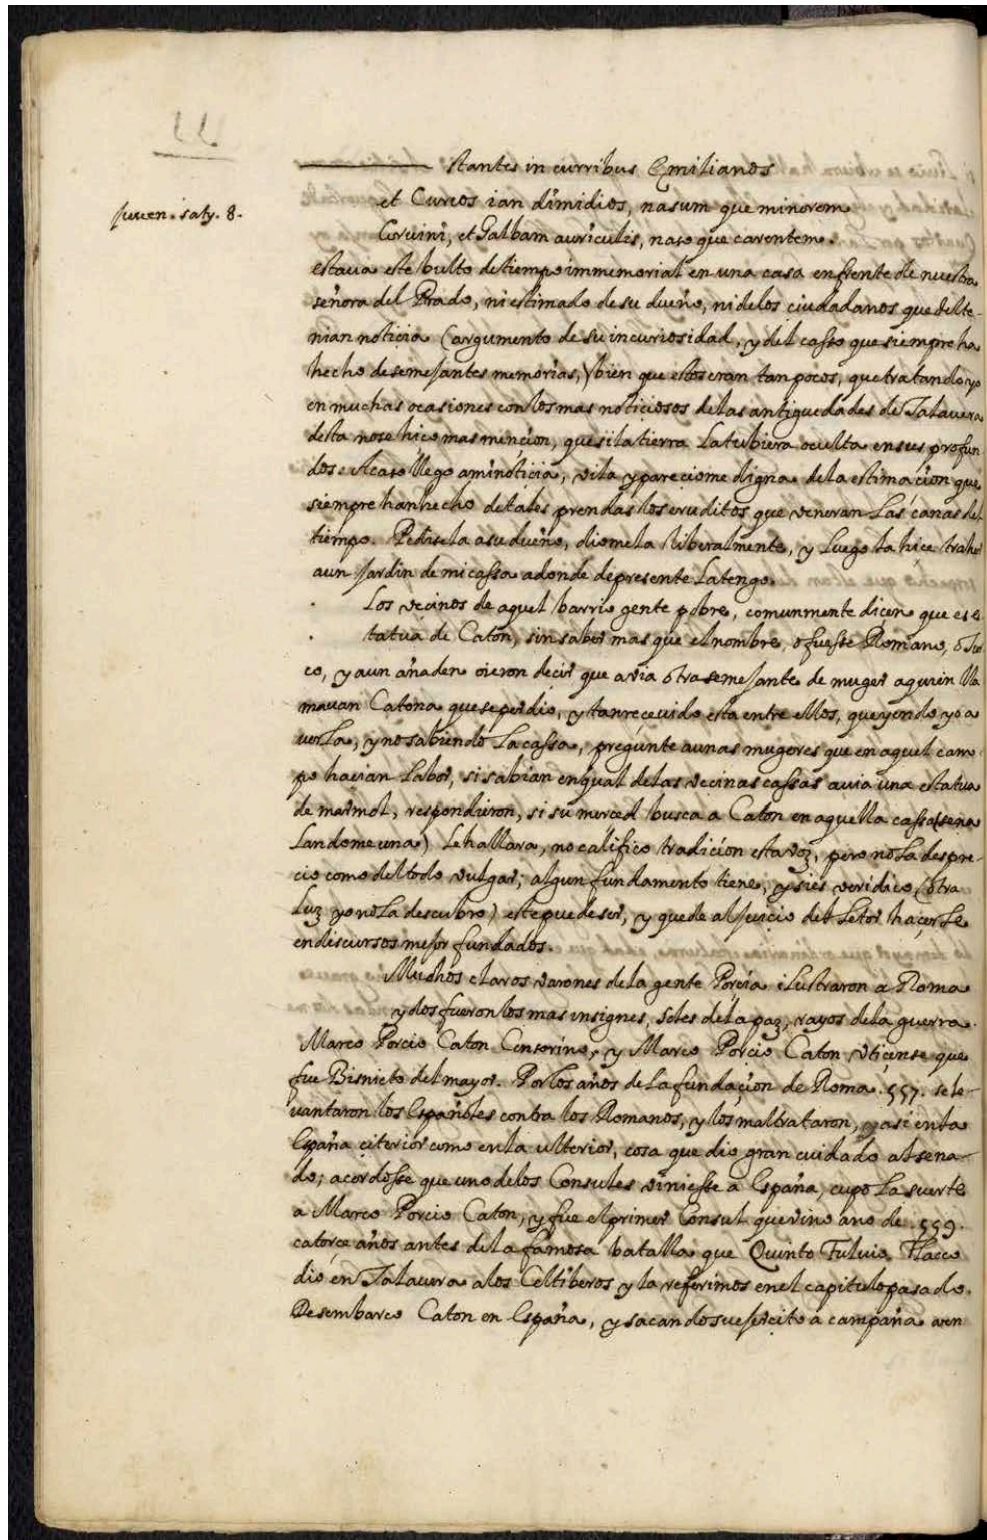 stantes in curribus Emilianos
Juuen. saty. 8.
et Curios ian dimidios, nasum que minorem
Coruini, et Galbam auriculis, naso que carentem.
estaua este bulto de tiempo immemorial en una casa enfrente de nuestra
señora del Prado, ni estimado de su dueño, ni de los ciudadanos que del te-
nian noticia (argumento de su incuriosidad, y del casso que siempre ha
hecho de semejantes memorias,) bien que estos eran tan pocos, que tratando yo
en muchas ocasiones con los mas noticiosos de las antiguedades de Talauera
desta no se hiço mas mencion, que si la tierra la tubiera oculta en sus profun
dos. Acaso llego a mi noticia, vila y pareciome digna de la estimacion que
siempre han hecho de tales prendas los eruditos que veneran las canas del
tiempo. Pedisela a su dueño, diomela liberalmente, y luego la hice traher
a un jardin de mi cassa adonde de presente la tengo.
Los vecinos de aquel barrio gente pobre, comunmente dicen que es es
tatua de Caton, sin saber mas que el nombre, o fuesse Romano, o Tur
co, y aun añaden oieron decir que avia otra semejante de muger a quien lla
mauan Catona que se perdio, y tan recevido esta entre ellos, que yendo yo a
verla, y no sabiendo la cassa, pregunte a unas mugeres que en aquel cam
po hacian labor, si sabian en qual de las vecinas cassas auia una estatua
de marmol, respondieron, si su merced busca a Caton en aquella cassa (seña
landome una) le hallara, no califico tradicion esta voz, pero no la despre-
cio como del todo vulgar; algun fundamento tiene, y si es veridico, (otra
luz yo no la descubro) este puede ser, y quede al juicio del letor hacerle
en discursos mejor fundados.
Muchos claros varones de la gente Porcia ilustraron a Roma
y dos fueron los mas insignes, soles de la paz, rayos de la guerra.
Marco Porcio Caton Censorino, y Marco Porcio Caton Uticense que
fue Bisnieto del mayor. Por los años de la fundaçion de Roma .557. se le-
uantaron los Españoles contra los Romanos, y los maltrataron, y asi en la
España citerior como en la ulterior, cosa que dio gran cuidado al sena-
do; acordosse que uno de los Consules viniesse a España, cupo la suerte
a Marco Porcio Caton, y fue el primer Consul que vino año de .559.
catorce años antes de la famosa batalla que Quinto Fuluio Flacco
dio en Talauera a los Celtiberos y la referimos en el capitulo pasado.
Desembarco Caton en España, y sacando su ejercito a campaña aven